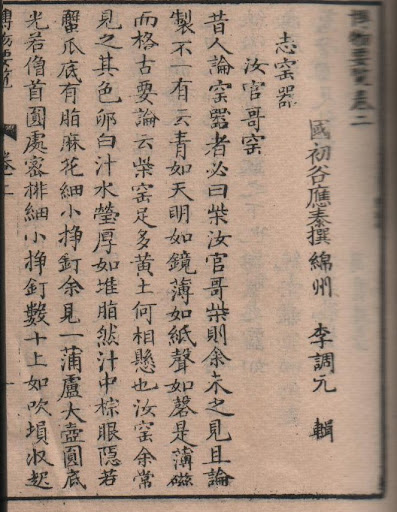 博物要覽卷二
國初谷應泰撰綿州 李調元 輯
志窑器
汝官哥窑
昔人論窑器者必曰柴汝官哥柴則余未之見且論
製不一有云青如天明如鏡薄如紙聲如磬是薄磁
而格古要論云柴窑足多黄土何相懸也汝窑余常
見之其色卵白汁水瑩厚如堆脂然汁中棕眼隱若
蟹爪底有脂麻花細小掙釘余見一蒲蘆大壺圓底
光若僧首圓處密排細小掙釘數十上如吹塤收起